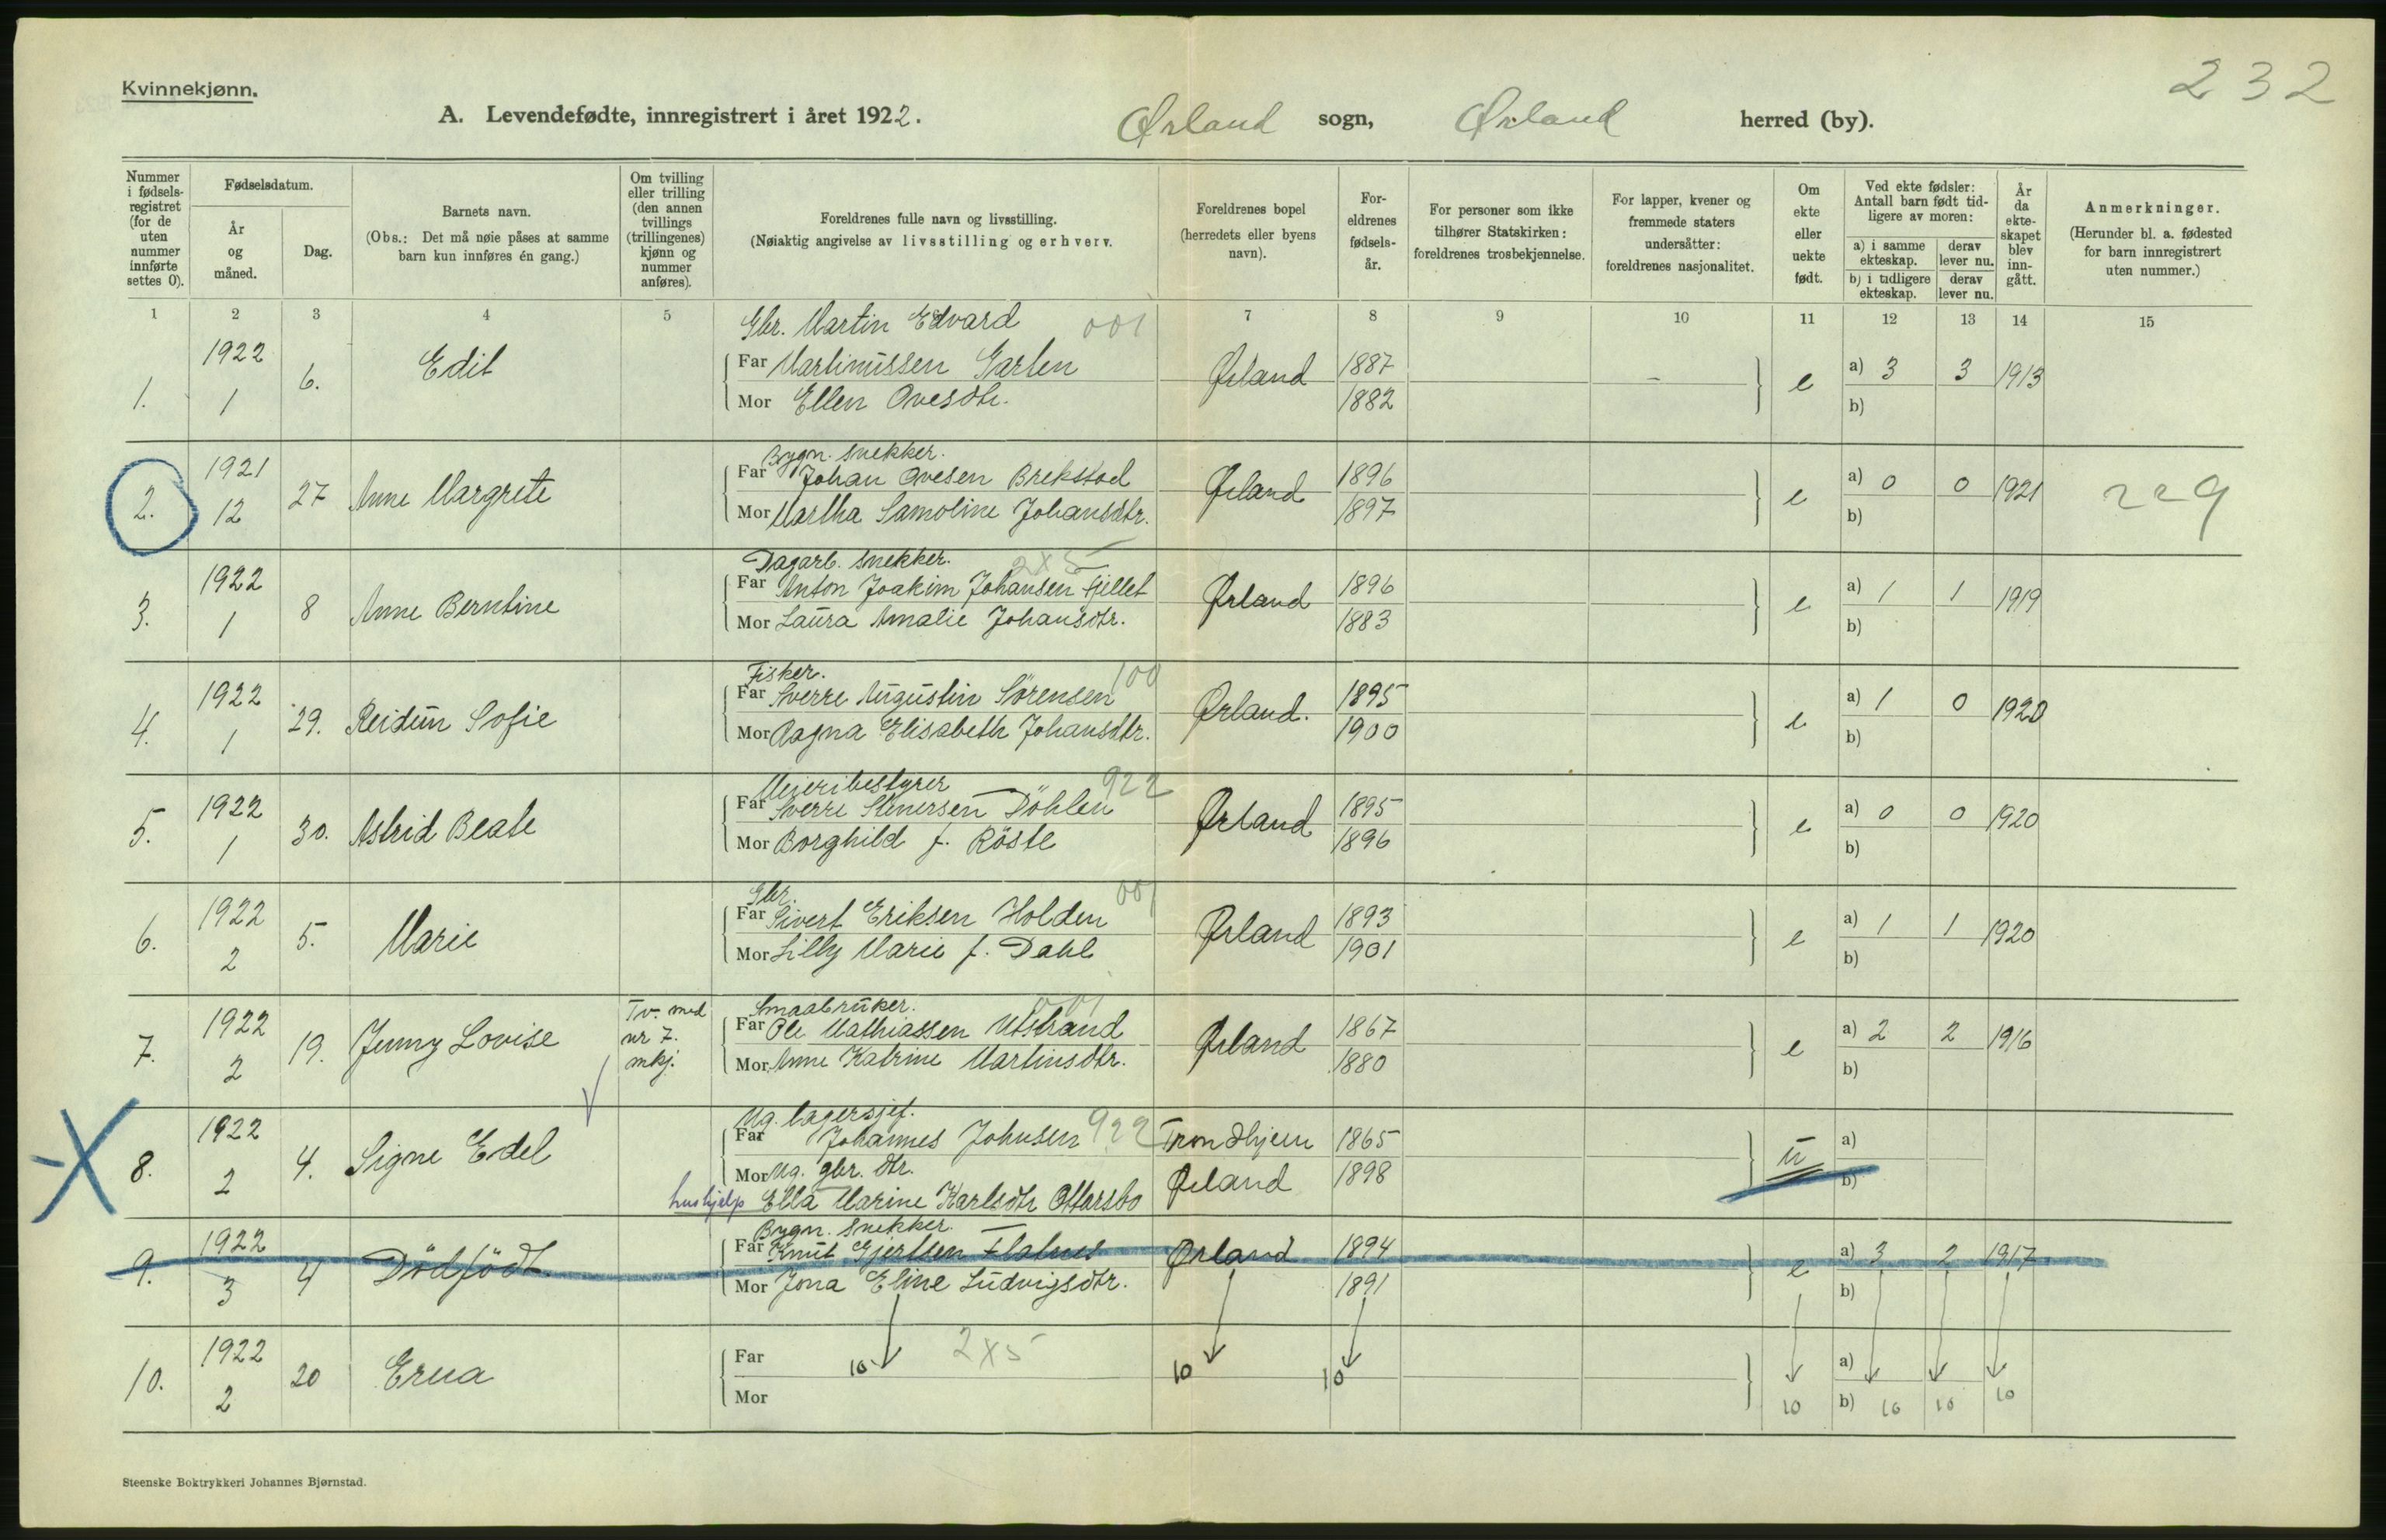 Kvinnekjønn.
232
A. Levendefødte, innregistrert i året 1922. Ørland sogn, Ørland herred (by).
Nummer i fødselsregistret (for de uten nummer innførte settes 0).
Fødselsdatum.
År og måned.
Dag.
Barnets navn.
(Obs.: Det må nøie påses at samme barn kun innføres én gang.)
Om tvilling eller trilling (den annen tvillings (trillingenes) kjønn og nummer anføres).
Foreldrenes fulle navn og livsstilling.
(Nøiaktig angivelse av livsstilling og erhverv.
Foreldrenes bopel (herredets eller byens navn).
Foreldrenes fødselsår.
For personer som ikke tilhører Statskirken: foreldrenes trosbekjennelse.
For lapper, kvener og fremmede staters undersåtter: foreldrenes nasjonalitet.
Om ekte eller uekte født.
Ved ekte fødsler: Antall barn født tidligere av moren:
a) i samme ekteskap.
derav lever nu.
b) i tidligere ekteskap.
derav lever nu.
År da ekteskapet blev inngått.
Anmerkninger.
(Herunder bl. a. fødested for barn innregistrert uten nummer.)
1 2 3 4 5 7 8 9 10 11 12 13 14 15
Gbr. Martin Edvard 001
1. 1922 1 6. Edit Far Martinussen Garten Ørland 1887 – e a) 3 3 1913
Mor Ellen Ovesdtr. 1882 b)
Bygn. snekker.
2. 1921 12 27 Anne Margrete Far Johan Ovesen Brekstad Ørland 1896 e a) 0 0 1921 229
Mor Martha Samoline Johansdtr. 1897 b)
Dagarb. snekker. 2x5
3. 1922 1 8 Anne Berntine Far Anton Joakim Johansen Fjellet Ørland 1896 e a) 1 1 1919
Mor Laura Amalie Johansdtr. 1883 b)
Fisker. 100
4. 1922 1 29. Reidun Sofie Far Sverre Augustin Sörensen Ørland. 1895 e a) 1 0 1920
Mor Ragna Elisabeth Johansdtr. 1900 b)
Meieribestyrer 922
5. 1922 1 30. Astrid Beate Far Sverre Stenersen Döhlen Ørland 1895 e a) 0 0 1920
Mor Borghild f. Röste 1896 b)
Gbr. 001
6. 1922 2 5. Marie Far Sivert Eriksen Holden Ørland 1893 e a) 1 1 1920
Mor Lilly Marie f. Dahl 1901 b)
Smaabruker. 001
7. 1922 2 19. Jenny Lovise Tv. med nr 7. mkj. Far Ole Mathiassen Utstrand Ørland 1867 e a) 2 2 1916
Mor Anne Katrine Martinsdtr. 1880 b)
Ug. lagersjef.
8. 1922 2 4. Signe Edel Far Johannes Johnsen 922 Trondhjem 1865 u a)
Mor Ug. gbr. dtr. Ørland 1898 b)
hushjelp Ella Marine Karlsdtr Ottersbo
Bygn. snekker.
9. 1922 3 4 Dödfödt Far Knut Gjertsen Flatnes Ørland 1894 e a) 3 2 1917
Mor Jona Eline Ludvigsdtr. 1891 b)
10. 1922 2 20 Erna Far 10 2x5 10 10 a)
Mor 10 b) 10 10 10
Steenske Boktrykkeri Johannes Bjørnstad.